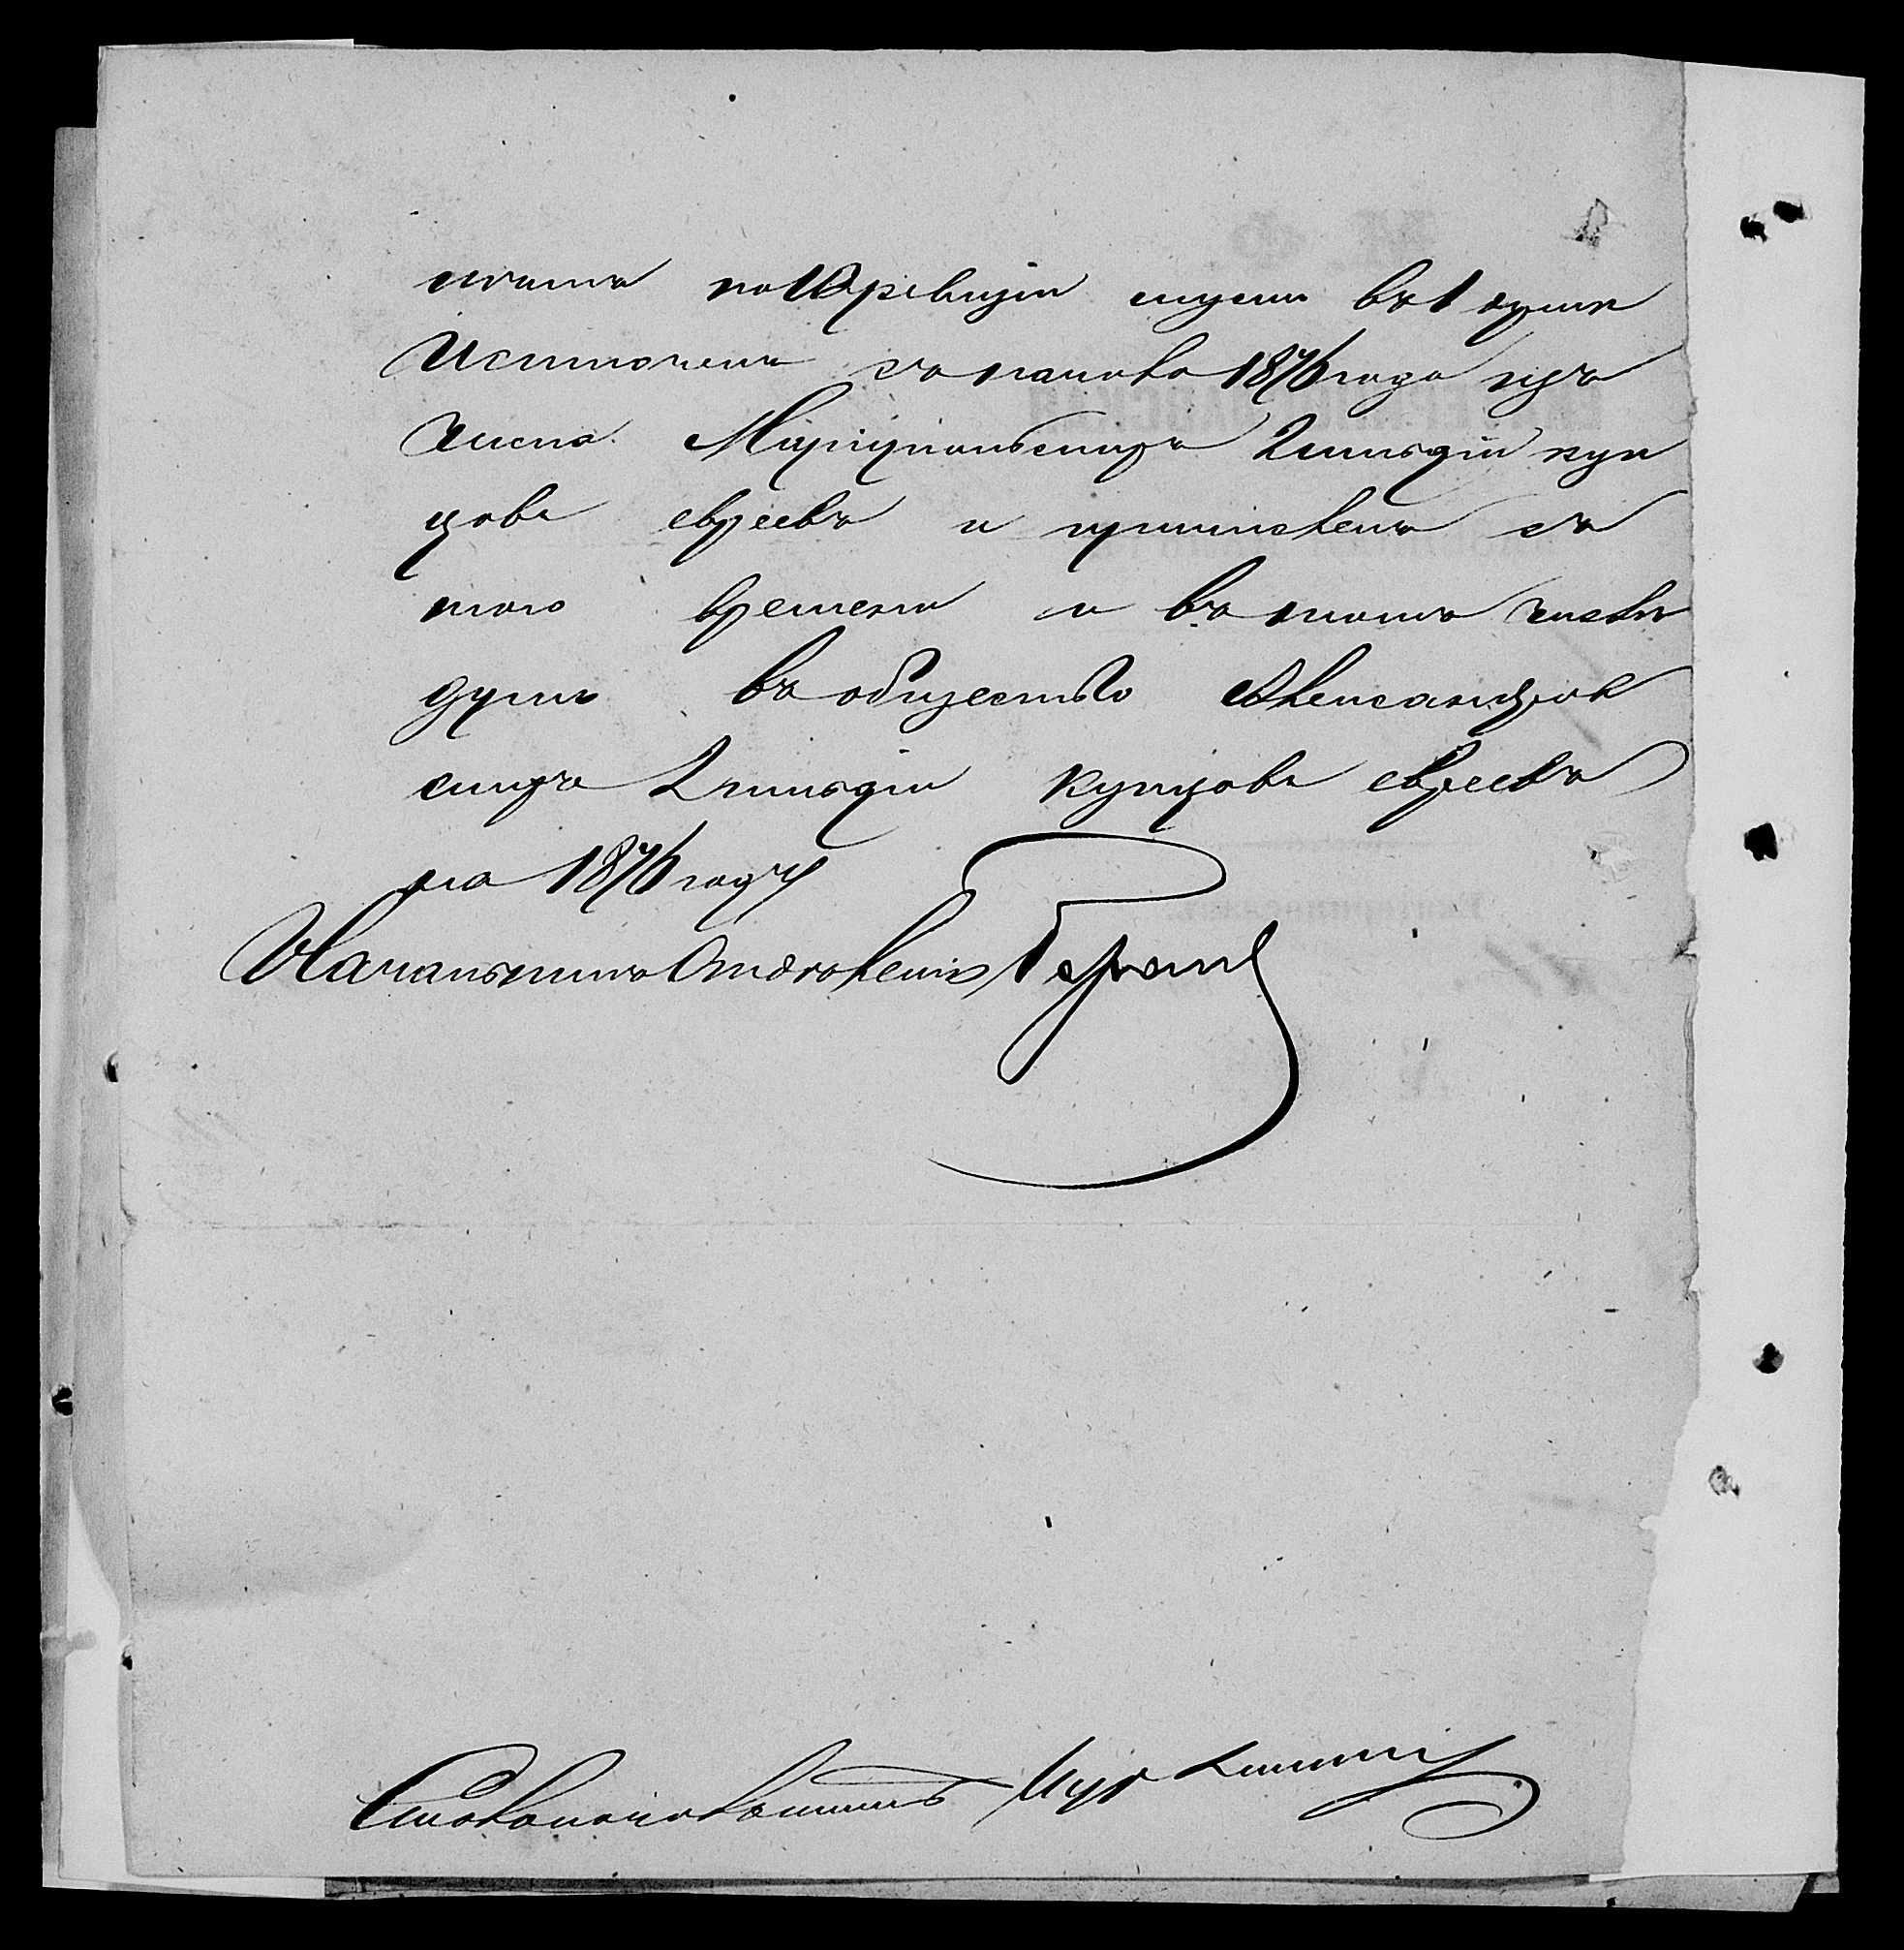 по 10 ревизіи въ 1 душѣ
Исключенъ съ начала 1876 года изъ
числа Маріупольскихъ 2 гильдіи куп
цовъ евреевъ и причисленъ съ
того времени и въ томъ числѣ
душъ въ общество Александров
скихъ 2 гильдіи купцовъ евреевъ
на 1876 годъ
Начальникъ Отдѣленія
Столоначальникъ